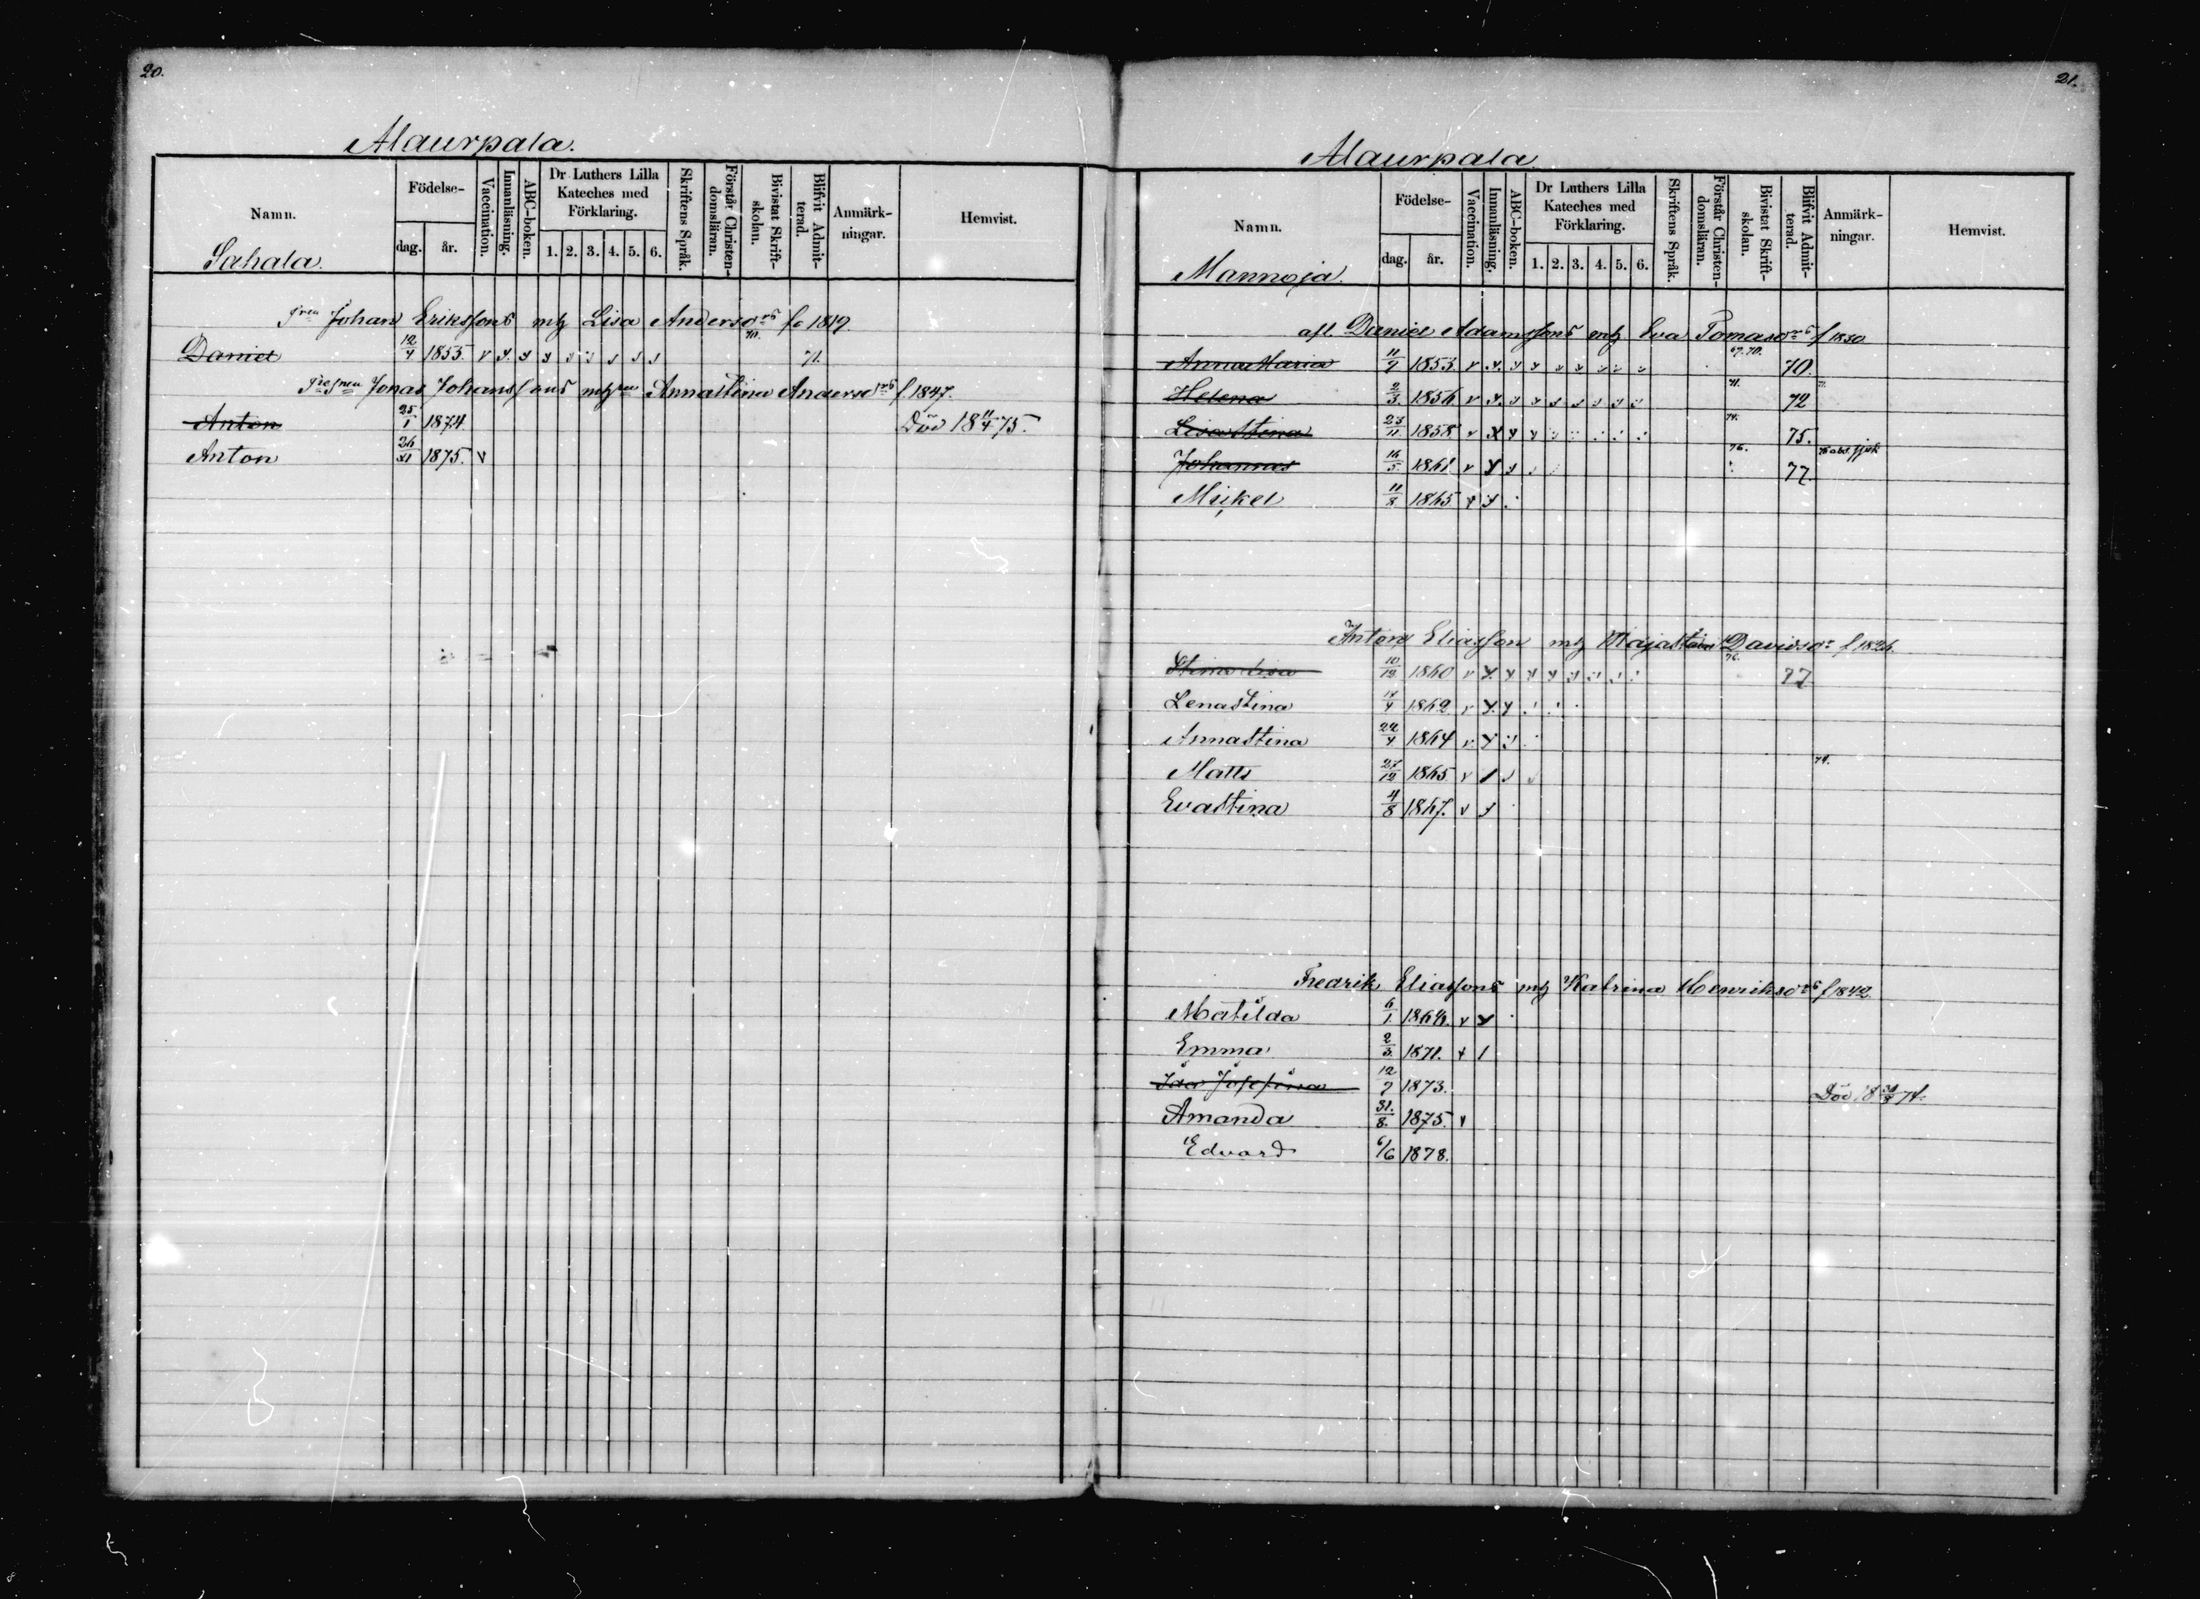 20.
Alaurpala.
Namn.
Födelse-
dag.
år.
Vaccination.
Innanläsning.
ABC-boken.
Dr Luthers Lilla
Kateches med
Förklaring.
1. 2. 3. 4. 5. 6.
Skriftens Språk.
Förstår Christen-
domsläran.
Bivistat Skrift-
skolan.
Blifvit Admit-
terad.
Anmärk-
ningar.
Hemvist.
Sahala.
Johan Eriksons mh Lisa Anders f. 1819
Daniel 12/4 1853. 71.
Jonas Johanssons Annastina Anders f. 1847.
Anton 25/1 1874 Död 18 11/4 75.
Anton 1875.
21.
Alaurpala
Namn.
Födelse-
dag.
år.
Vaccination.
Innanläsning.
ABC-boken.
Dr Luthers Lilla
Kateches med
Förklaring.
1. 2. 3. 4. 5. 6.
Skriftens Språk.
Förstår Christen-
domsläran.
Bivistat Skrift-
skolan.
Blifvit Admit-
terad.
Anmärk-
ningar.
Hemvist.
Mannoja.
afl. Daniel Adamssons Eva Tomas f 1830
Anna Maria 1853. 69.70. 70.
Helena 2/3 1856 71. 72
Lisa Stina 23/11 1858 74. 75.
Johannes 16/5 1861 76. 77.
Mickel 11/8 1865
Anton Eliasson Majastina Davids f 1826.
Stina Lisa 10/12 1860 76. 77
Lenastina 1862
Annastina 22/4 1864
Matts 27/12 1865
Evastina 4/8 1867.
Fredrik Eliassons Katrina Henriks f 1842.
Matilda 6/1
Emma 2/3 1871.
Ida Josefina 1873. Död
Amanda 31./8. 1875.
Edvard 6/6 1878.